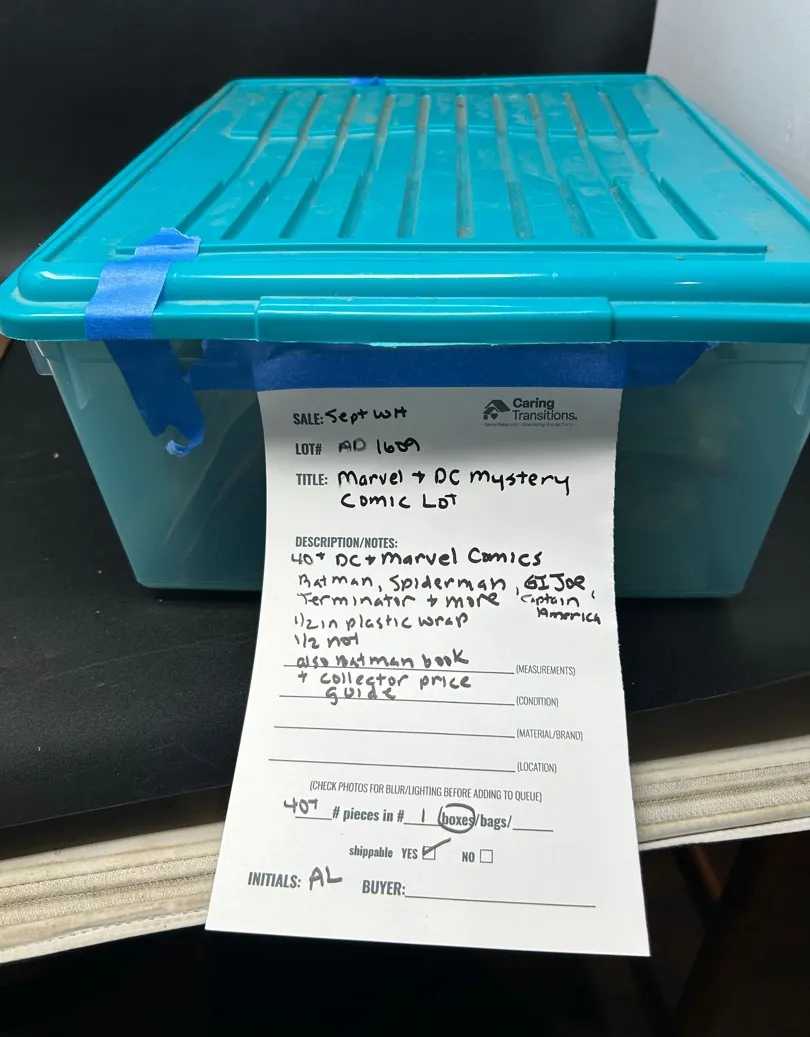 Caring
Transitions.
SALE: Sept WH
LOT# AD 1609
TITLE: Marvel + DC Mystery
Comic Lot
DESCRIPTION/NOTES:
40+ DC + Marvel Comics
Batman, Spiderman, GI JOE,
Terminator + more Captain
America
1/2 in plastic wrap
1/2 not
also Batman book
(MEASUREMENTS)
+ collector price
guide
(CONDITION)
(MATERIAL/BRAND)
(LOCATION)
(CHECK PHOTOS FOR BLUR/LIGHTING BEFORE ADDING TO QUEUE)
40+ # pieces in # 1 (boxes/bags/
shippable YES NO
INITIALS: AL BUYER: